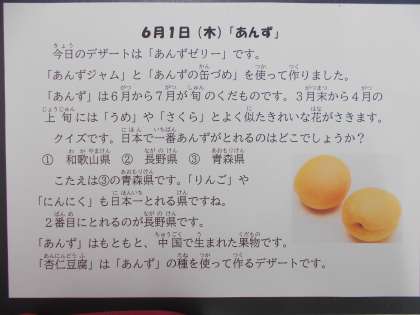 6月1日(木)「あんず」
今日のデザートは「あんずゼリー」です。
「あんずジャム」と「あんずの缶づめ」を使って作りました。
「あんず」は6月から7月が旬のくだものです。3月末から4月の
上旬には「うめ」や「さくら」とよく似たきれいな花がさきます。
クイズです。日本で一番あんずがとれるのはどこでしょうか?
① 和歌山県 ② 長野県 ③ 青森県
こたえは③の青森県です。「りんご」や
「にんにく」も日本一とれる県ですね。
2番目にとれるのが長野県です。
「あんず」はもともと、中国で生まれた果物です。
「杏仁豆腐」は「あんず」の種を使って作るデザートです。